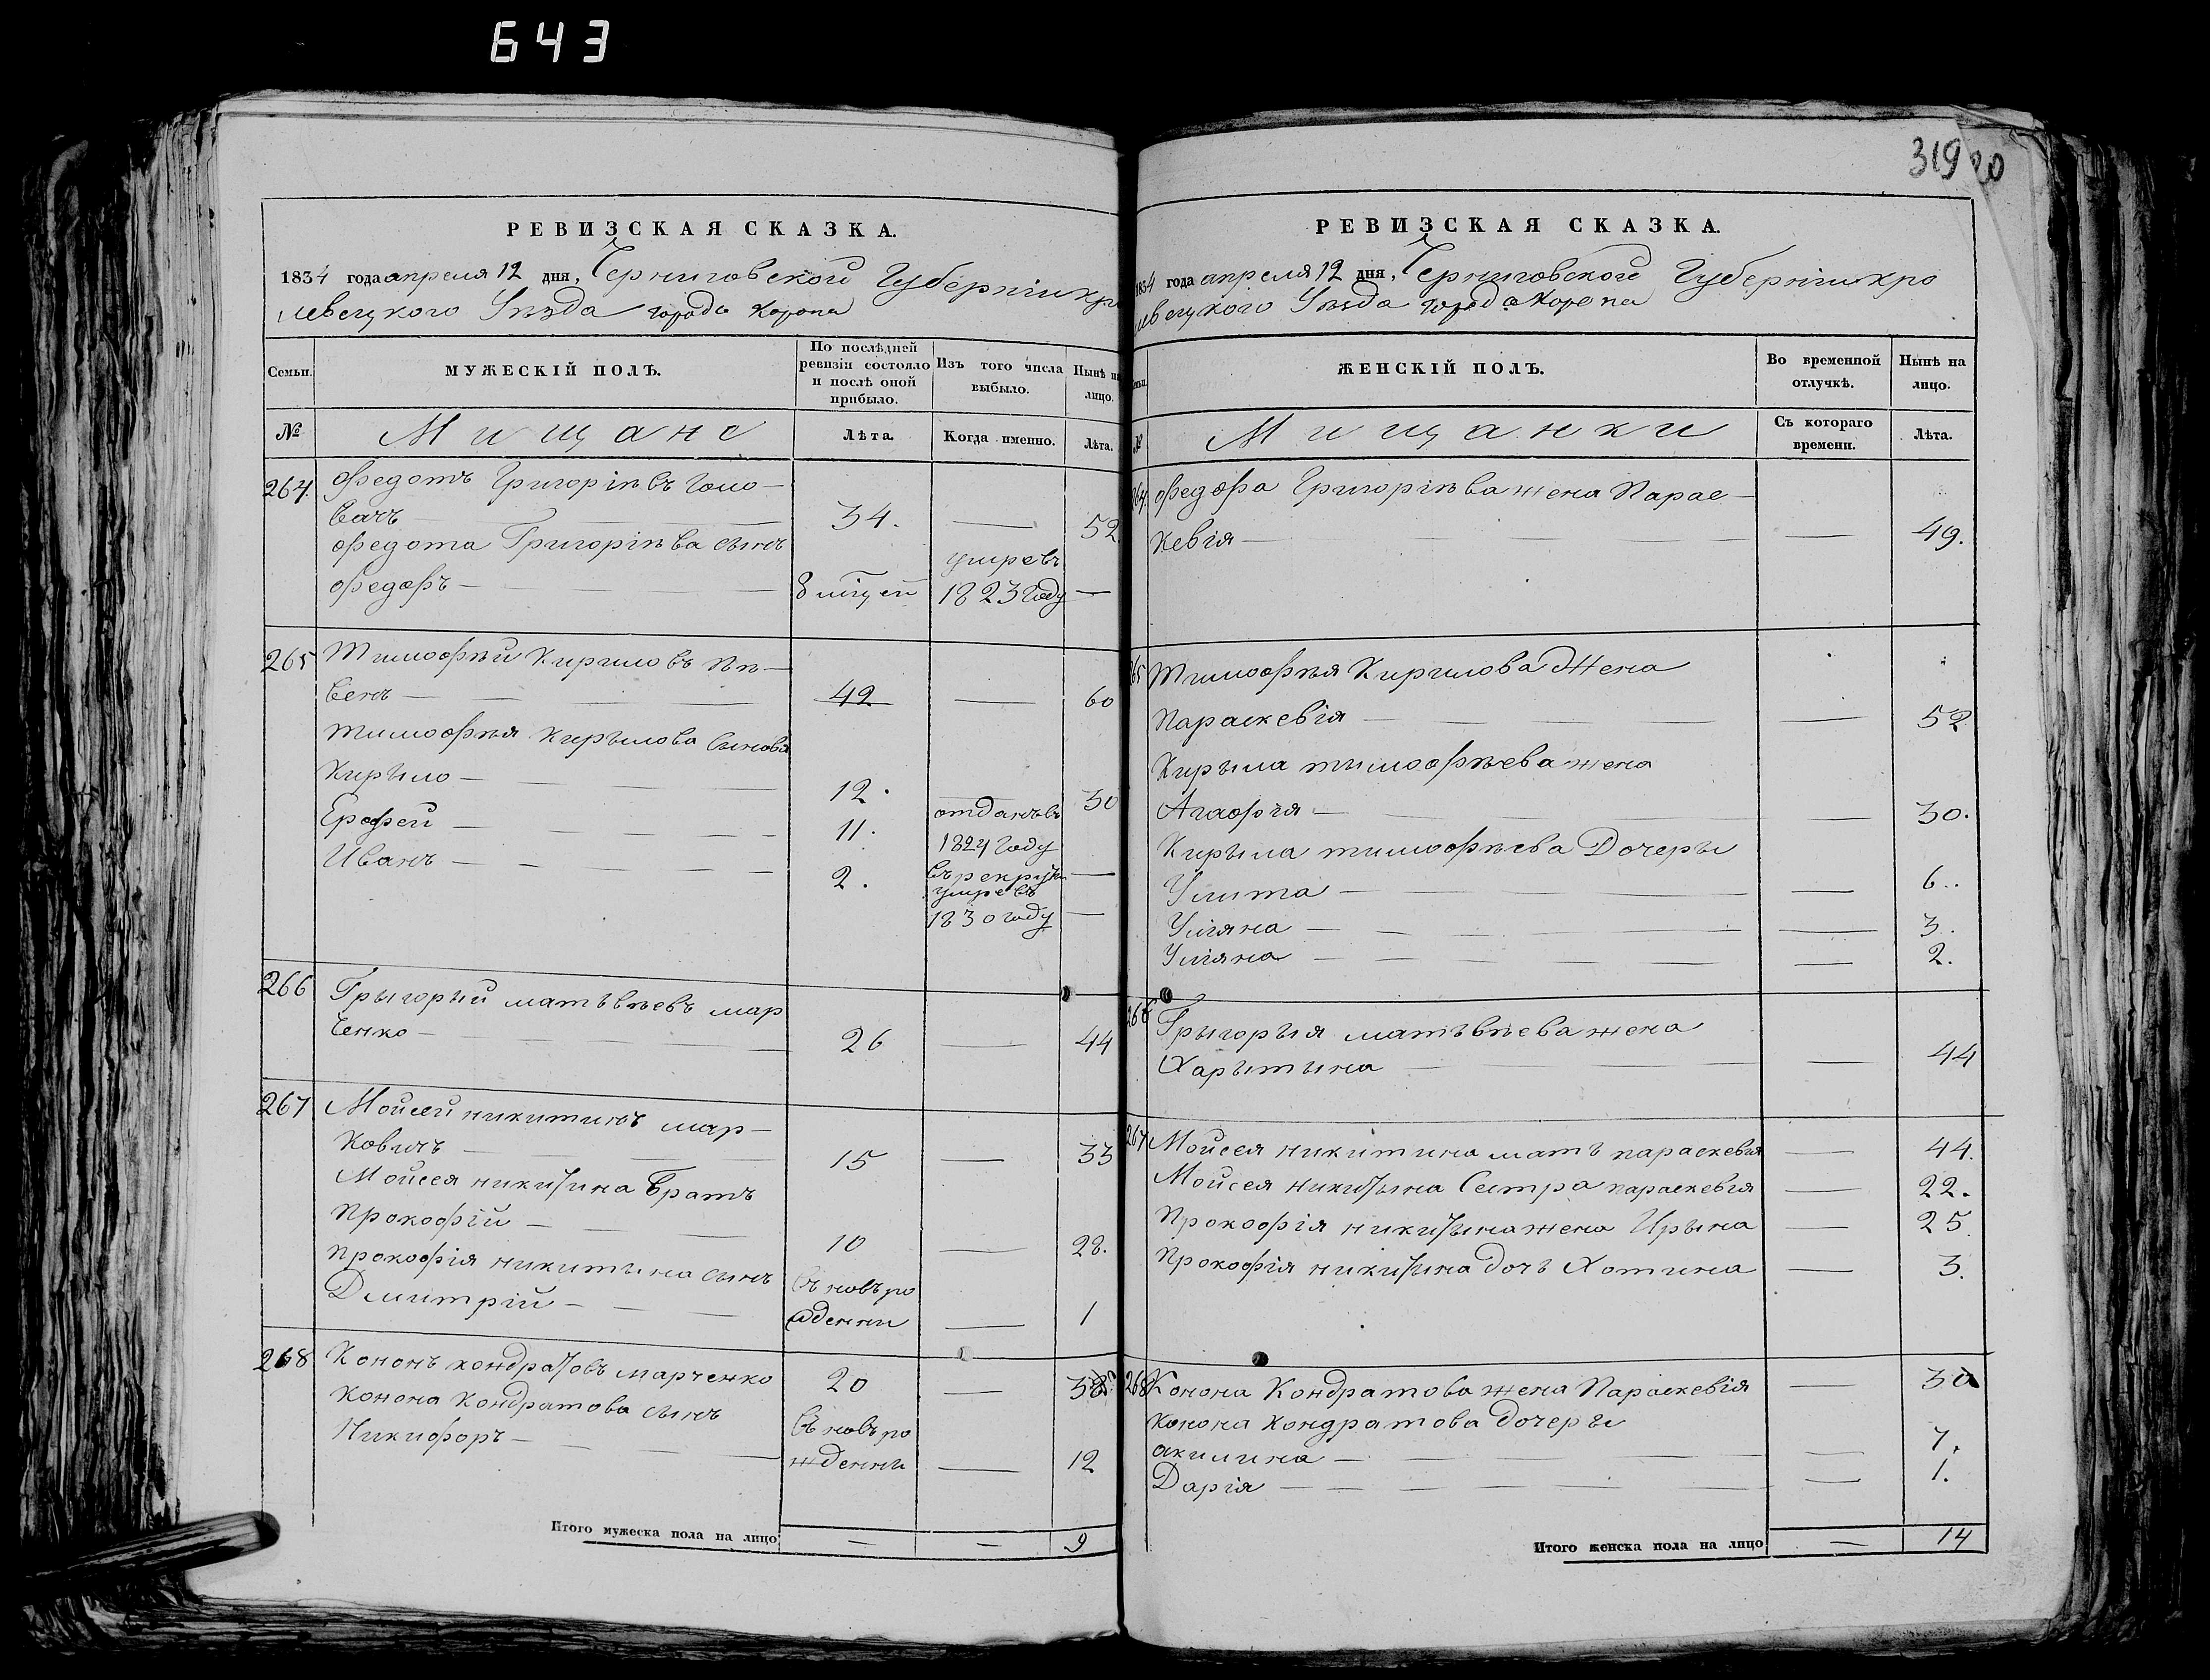 643
РЕВИЗСКАЯ СКАЗКА.
1834 года апреля 12 дня, Черниговской Губерніи кро
левецкого Уѣзда города Коропа
Семьи.
МУЖЕСКІЙ ПОЛЪ.
По послѣдней ревизіи состояло и послѣ оной прибыло.
Изъ того числа выбыло.
Нынѣ на лицо.
№
Мищане
Лѣта.
Когда именно.
Лѣта.
264. Федотъ Григоріевъ Голо-
вачъ — 34. — 52.
Федота Григорієва сынъ
умре въ
Федоръ — 8 1823 Году —
265 Тимофѣй Кириловъ Пѣ-
вень — 42 — 60
Тимофѣя Кирылова сынова
Кирыло — 12. — 30
Ерофей — 11. отданъ въ
1824 Году
въ рекруты —
Иванъ — 2. умре въ
1830 году —
266 Грыгорый матьвѣевъ мар
ченко — 26 — 44
267 Мойсей никитинъ мар-
ковичъ — 15 — 33
Мойсея никитина братъ
Прокофій — 10 — 28.
Прокофія никитына сынъ въ новъ ро
Дмитрій — жденни — 1
268 Кононъ кондратовъ марченко 20 — 38
Конона Кондратова сынъ въ новъ ро
Никифоръ — жденни — 12
Итого мужеска пола на лицо — — 9
319 20
РЕВИЗСКАЯ СКАЗКА.
1834 года апреля 12 дня, Черниговского Губерніи кро
левецкого Уѣзда города Коропа
ЖЕНСКІЙ ПОЛЪ.
Во временной отлучкѣ.
Нынѣ на лицо.
№
Мищанки
Съ котораго времени.
Лѣта.
264. Федора Григорієва жена Парас-
кевія — — 49.
265 Тимофѣя Кирилова Жена
Параскевія — — 52
Кирыла тымофѣева жена
Агафія — — 30.
Кирыла тимофѣева Дочеры
Улита — — 6..
Уліяна — — 3.
Уліяна — — 2.
266 Грыгорыя матьвѣева жена
Харытына — — 44
267 Мойсея никитина мать параскевія — 44.
Мойсея никитына Сестра параскевія — 22.
Прокофія никитына жена Ирына — 25.
Прокофія никитына дочь Хотина — 3.
268 Конона Кондратова жена Параскевія — 30
Конона Кондратова дочеры
акилина — — 7.
Дарія — — 1.
Итого женска пола на лицо — 14